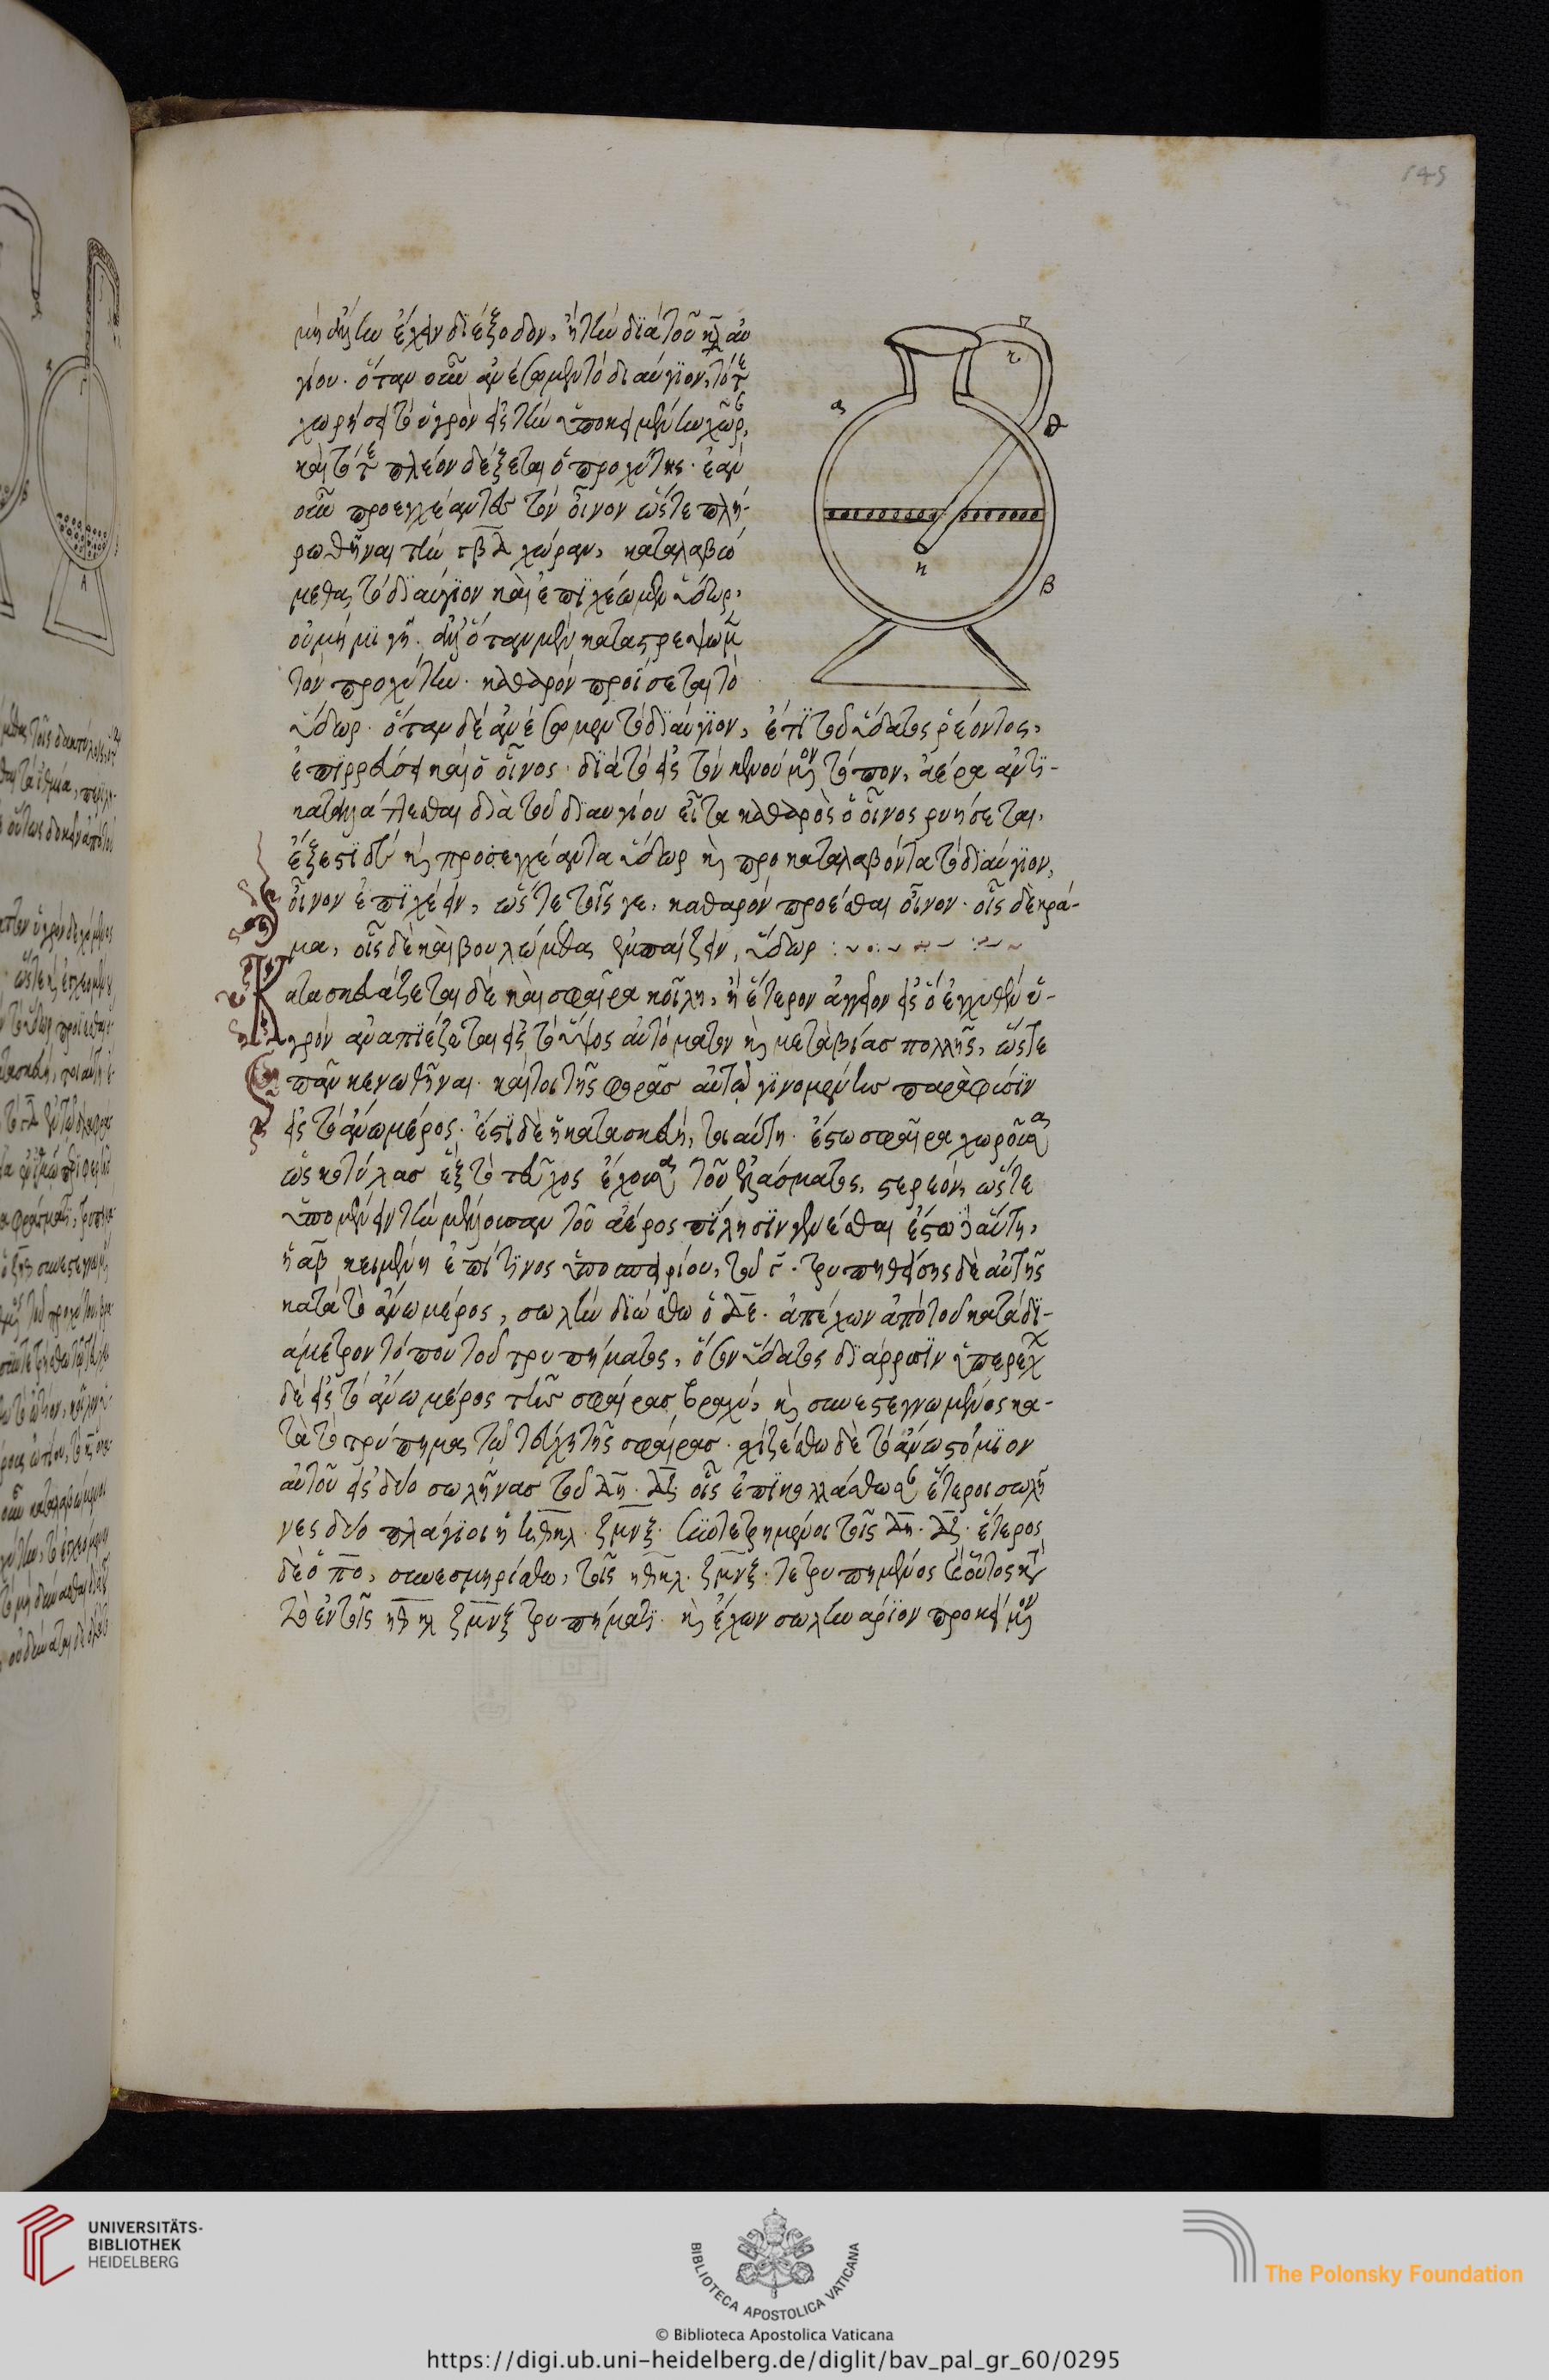 μὴ ἄλλην ἔχειν διέξοδον, ἢ τὴν διὰ τοῦ αυ
γίου. ὅταν οὖν ἀνέσωμεν τὸ διαύγιον, τότε
χωρήσει τὸ ὑγρὸν εἰς τὴν ὑποκειμένην χώραν,
καὶ τότε πλέον δέξεται ὁ προχύτης. ἐὰν
οὖν προεγχέαντες τὸν οἶνον ὥστε πλη-
ρωθῆναι τὴν γβδ χώραν, καταλαβώ
μεθα τὸ διαύγιον καὶ ἐπιχέωμεν ὕδωρ,
οὐ μὴ μιγῇ. ἀλλ' ὅταν μὲν καταστρέψωμεν
τὸν προχύτην. καθαρὸν προΐσεται τὸ
ὕδωρ. ὅταν δὲ ἀνέσωμεν τὸ διαύγιον, ἔτι τοῦ ὕδατος ῥέοντος,
ἐπιρρεύσει καὶ ὁ οἶνος. διὰ τὸ εἰς τὸν κενούμενον τόπον, ἀέρα ἀντι-
καταλλάττεσθαι διὰ τοῦ διαυγίου εἶτα καθαρὸς ὁ οἶνος ρυήσεται.
ἔξεστι δὲ καὶ προσεγχέαντα ὕδωρ καὶ προκαταλαβόντα τὸ διαύγιον,
οἶνον ἐπιχέειν, ὥστε τοῖς γε, καθαρὸν προέσθαι οἶνον. οἷς δὲ κρά-
μα, οἷς δὲ καὶ βουλώμεθα ἐμπαίζειν, ὕδωρ :~
Κατασκευάζεται δὲ καὶ σφαῖρα κοίλη, ἢ ἕτερον ἀγγεῖον εἰς ὃ ἐγχυθὲν ὑ-
γρὸν ἀναπιέζεται εἰς τὸ ὕψος αὐτόματον καὶ μετὰ βίας πολλῆς, ὥστε
πᾶν κενωθῆναι. καίτοι τῆς φορᾶς αὐτῷ γινομένης παρὰ φύσιν
εἰς τὸ ἄνω μέρος. ἔστι δὲ ἡ κατασκευή, τοιαύτη. ἔστω σφαῖρα χωροῦσα
ὡς κοτύλας ἓξ τὸ τεῦχος ἔχουσα τοῦ ἐλάσματος, στερεόν, ὥστε
ὑπομένειν τὴν μέλλουσαν τοῦ ἀέρος πίλησιν γενέσθαι ἔστω δὲ αὕτη,
ἡ αβ κειμένη ἐπί τινος ὑποσπειρίου, τοῦ γ. τρυπηθείσης δὲ αὐτῆς
κατὰ τὸ ἄνω μέρος, σωλὴν διώσθω ὁ δε. ἀπέχων ἀπὸ τοῦ κατὰ δι-
άμετρον τόπου τοῦ τρυπήματος, ὅσον ὕδατος διάρρυσιν ὑπερέχων
δὲ εἰς τὸ ἄνω μέρος τῆς σφαίρας βραχύ, καὶ συνεστεγνωμένος κα-
τὰ τὸ τρύπημα τῷ τεύχει τῆς σφαίρας. σχιζέσθω δὲ τὸ ἄνω στόμιον
αὐτοῦ εἰς δύο σωλῆνας τοῦ δη. δζ οἷς ἐπικολλάσθωσαν ἕτεροι σωλῆ
νες δύο πλάγιοι ἡ ηθκλ. ζμνξ. συντετρημένοι τοῖς δη. δζ. ἕτερος
δὲ ὁ πο, συνεσμηρίσθω, τοῖς ηθκλ. ζμνξ. τετρυπημένος καὶ οὗτος κατὰ
τὰ ἐν τοῖς ηθκλ ζμνξ τρυπήματι. καὶ ἔχων σωληνάριον προκείμενον
145
α
β
θ
κ
UNIVERSITÄTS-
BIBLIOTHEK
HEIDELBERG
BIBLIOTECA APOSTOLICA VATICANA
The Polonsky Foundation
© Biblioteca Apostolica Vaticana
https://digi.ub.uni-heidelberg.de/diglit/bav_pal_gr_60/0295